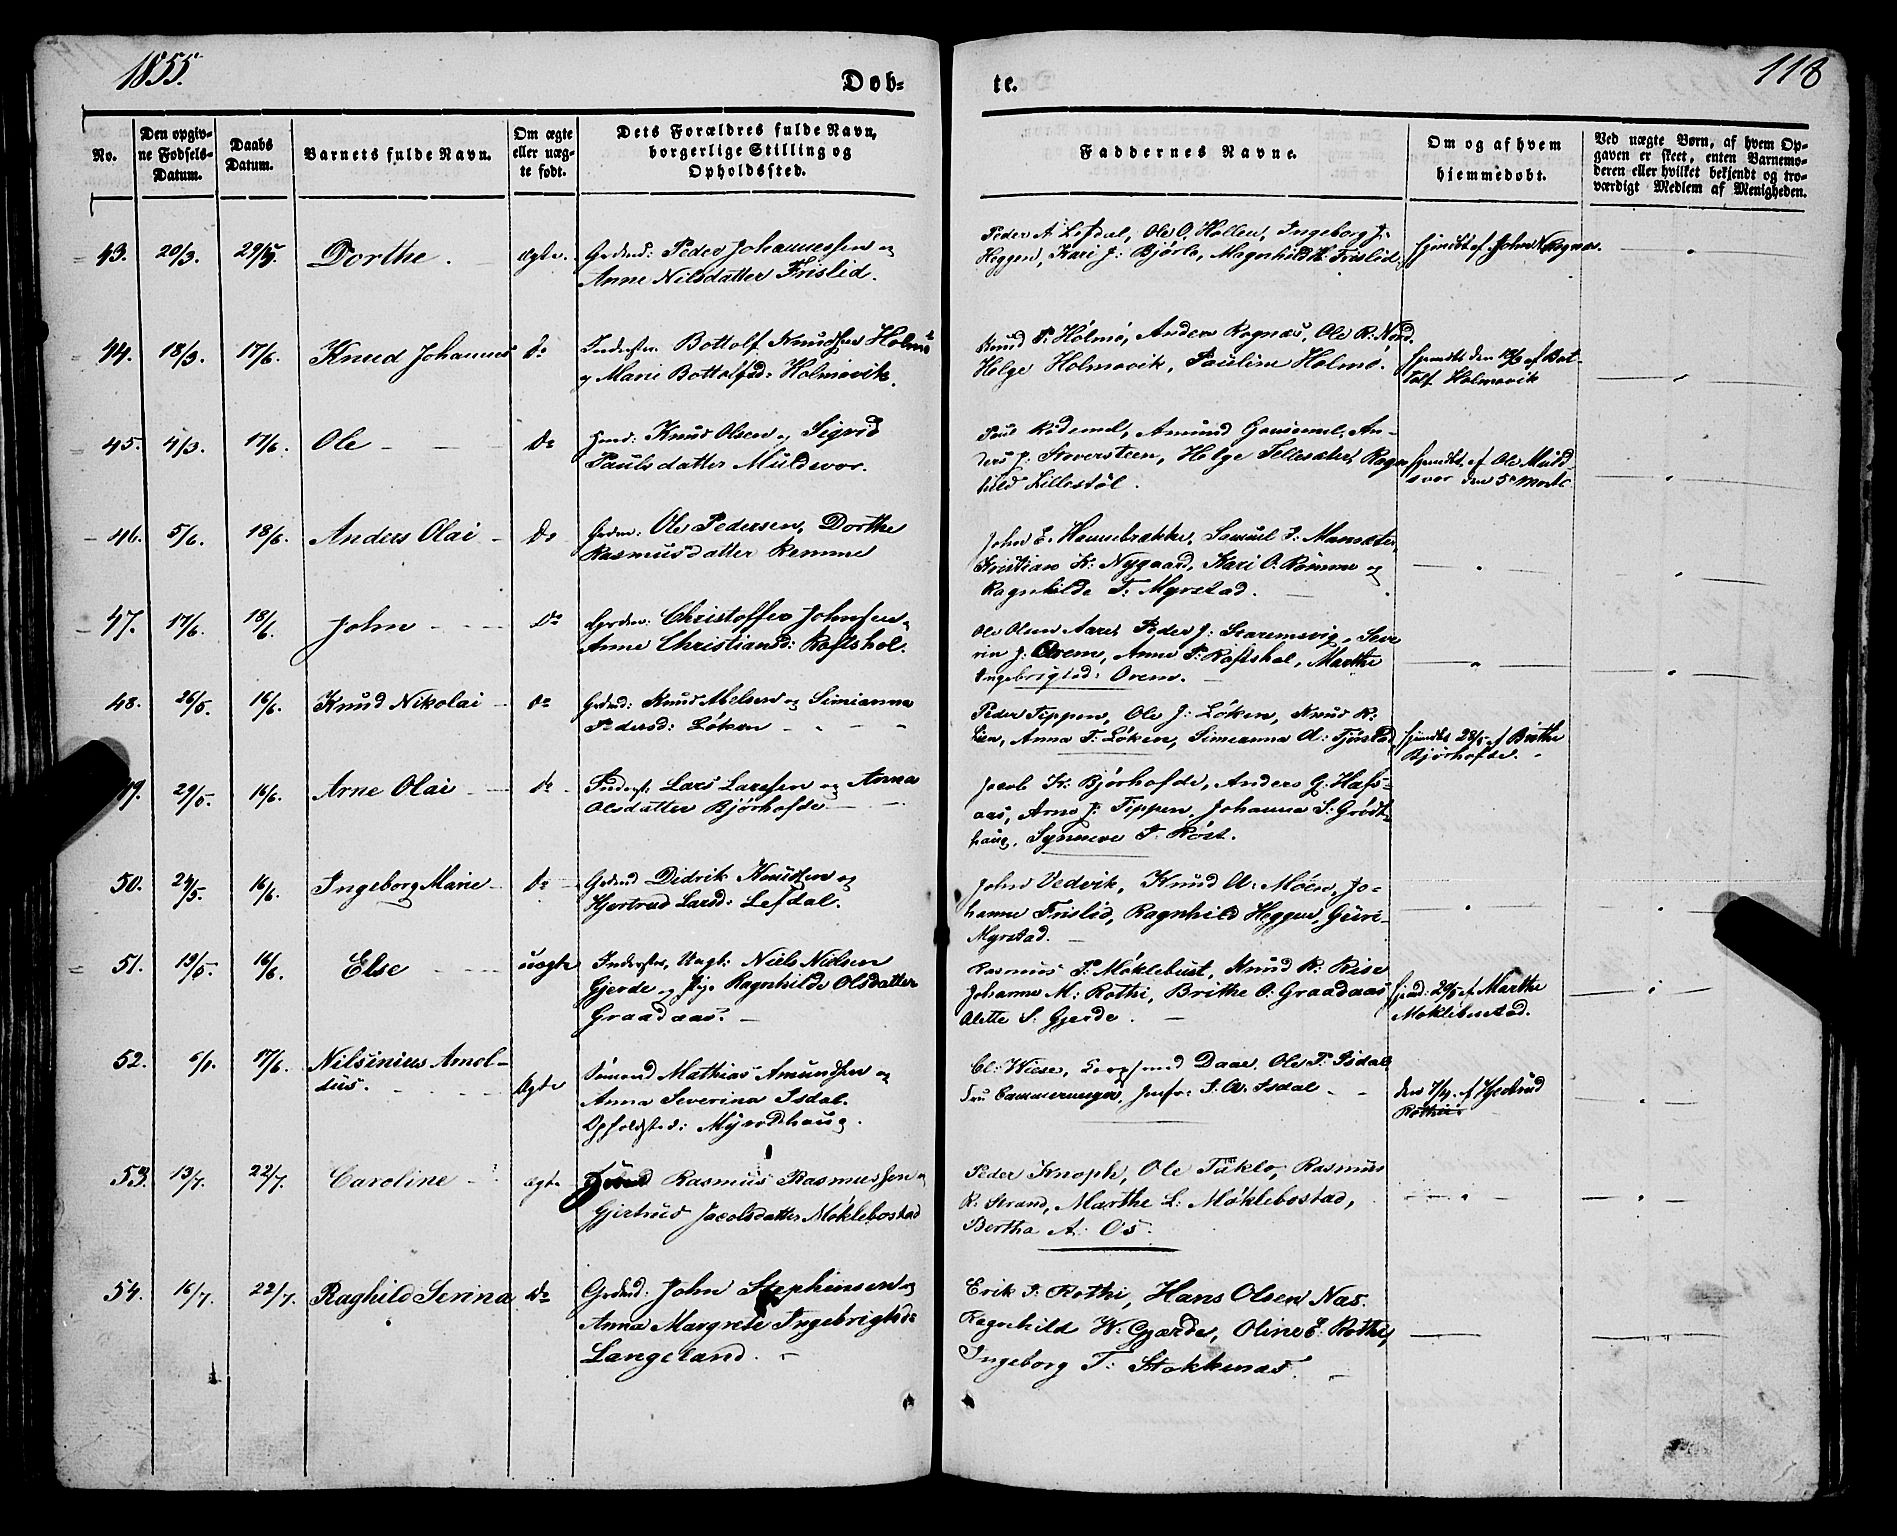 1855.
Døb-
te.
118
No.
Den opgiv-
ne Fødsels-
Datum.
Daabs
Datum.
Barnets fulde Navn.
Om ægte
eller uæg-
te født.
Dets Forældres fulde Navn,
borgerlige Stilling og
Opholdssted.
Faddernes Navne.
Om og af hvem
hjemmedøbt.
Ved uægte Børn, af hvem Op-
gaven er skeet, enten Barnemo-
deren eller hvilket bekjendt og tro-
værdigt Medlem af Menigheden.
43. 20/3. 29/5. Dorthe. ægte.
Grdmd: Peder Johannessen og
Anne Nilsdatter Frislid.
Peder A. Lefdal, Ole O. Hollen, Ingeborg J:
Heggen, Kari J: Bjørlo, Magnhild K. Frislid.
hjemdbt af John Rognes.
44. 18/3. 17/6. Knud Johannes Do
Inderster Bottolf Knudsen Holmø
og Marie Bottolfsd: Holmøvik.
Knud P. Holmø, Anders Rognæs, Ole R. Nord,
Helge Holmøvik, Pauline Holmø.
hjemdbt den 18/3 af Bot-
tolf Holmøvik
45. 4/3. 17/6. Ole Do
Knud Olsen og Sigrid
Paulsdatter Muldsvor.
Paul Rødemel, Amund Gausemel, An-
ders J. Stoversteen, Helge Tellesæter, Ragn-
hild Lillestøl.
hjemdbt. af Ole Muld-
svor den 5te Marts
46. 5/6. 18/6. Anders Olai Do
Grdm: Ole Pedersen, Dorthe
Rasmusdatter Remme
John E. Hennebrække, Samuel S. Mansæter,
Kristian K: Nygaard, Kari O. Rømme og
Ragnhilde T: Myrstad.
47. 17/6. 18/6. John Do
Christoffer Johnsen,
Anne Christiansd: Roftshol.
Ole Olsen Aare, Peder J: Staremsvig, Seve-
rin J: Orem, Anne P: Roftshol, Marthe
Ingebrigtsd: Orem.
48. 26/5. 16/6. Knud Nikolai Do
Grdmd: Knud Abelsen og Simianna
Pedersd: Løken
Peder Tippen, Ole J: Løken, Knud R:
Lien, Anna T. Løken, Simeanna A: Tjørstad,
hjemdbt 28/5 af Brithe
Bjørhofde.
49. 29/5. 16/6. Arne Olai Do
Inderst: Lars Larssen og Anna
Olsdatter Bjørhofde
Jacob K. Bjørhofde, Anders J. Hafs-
aas, Arne J: Tippen, Johanna S: Grødt-
haug, Synneve P. Røst.
50. 24/5. 16/6. Ingeborg Marie Do
Grdmd Didrik Knudsen og
Hjertrud Larsd: Lefdal.
John Vedvik, Knud A: Moen, Jo-
hanne Frislid, Ragnhild Heggen, Guri
Myrstad.
51. 19/5. 16/6. Else uægte
Inderster, Ungk: Niels Nielsen
Gjerde og Pige Ragnhilde Olsdatter
Graadaas.
Rasmus P. Møklebust, Knud R: Rise
Johanne M: Rothi, Brithe O: Graadaas
Alette S. Gjerde.
hjemd: 20/5 af Marthe
Møklebustad.
52. 17/6. Nilsinius Arnol-
dus. Ægte
Sømand Mathias Amundsen og
Anna Severina Isdal.
Opholdsted: Myrodehaug.
Cl: Wiese, Daae, Ole P. Isdal
Fru Cammermeyer, Jnfr: P. A. Isdal
den af Hjertrud
Rothi.
53. 13/7. 22/7. Caroline ægte
Rasmus Rasmussen og
Gjertrud Jacobsdatter Møklebostad
Peder Knoph, Ole Taklo, Rasmus
R: Strand, Marthe L: Møklebostad,
Bertha A. Os.
54. 16/7. 22/7. Raghild Serina Do
Grdmd: John Stephensen og
Anna Margrete Ingebrigtsd:
Langeland.
Erik P. Rothi, Hans Olsen Nas.
Ragnhild W: Gjærde, Oline E: Rothi,
Ingeborg T: Stokkenæs.